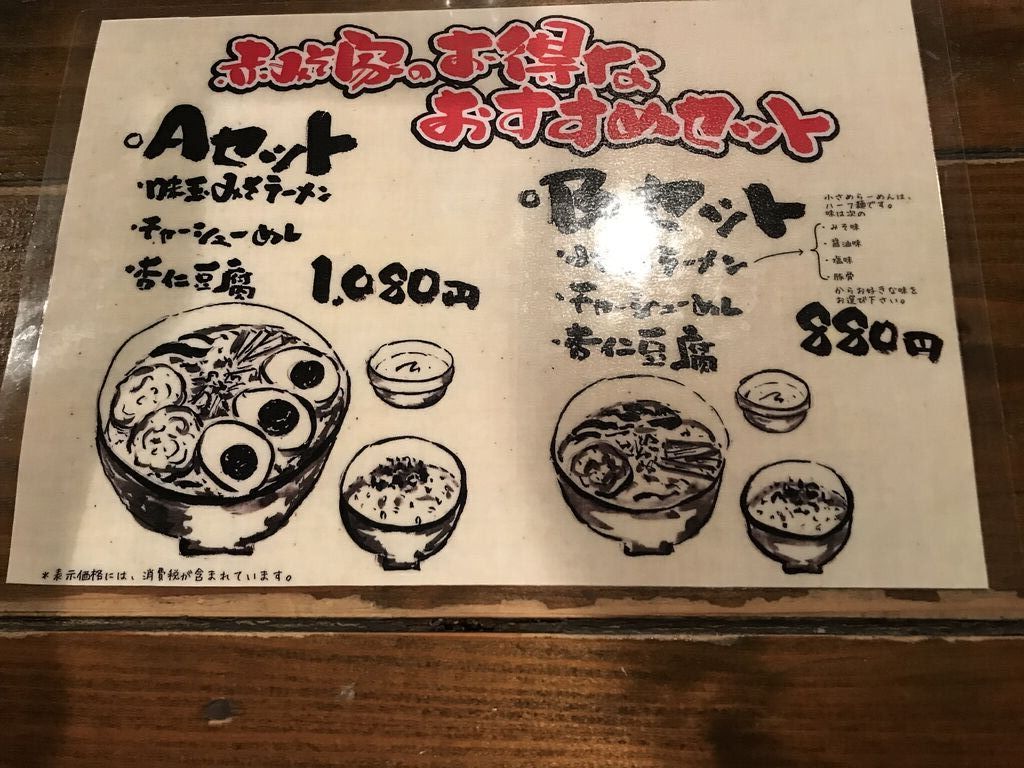 赤みそ家のお得な
おすすめセット
Aセット
・味玉みそラーメン
・チャーシューめし
・杏仁豆腐
1,080円
Bセット
ラーメン
・チャーシューめし
・杏仁豆腐
880円
小さめらーめんは、
ハーフ麺です。
味は次の
・みそ味
・醤油味
・塩味
・豚骨
からお好きな味を
お選び下さい。
*表示価格には、消費税が含まれています。